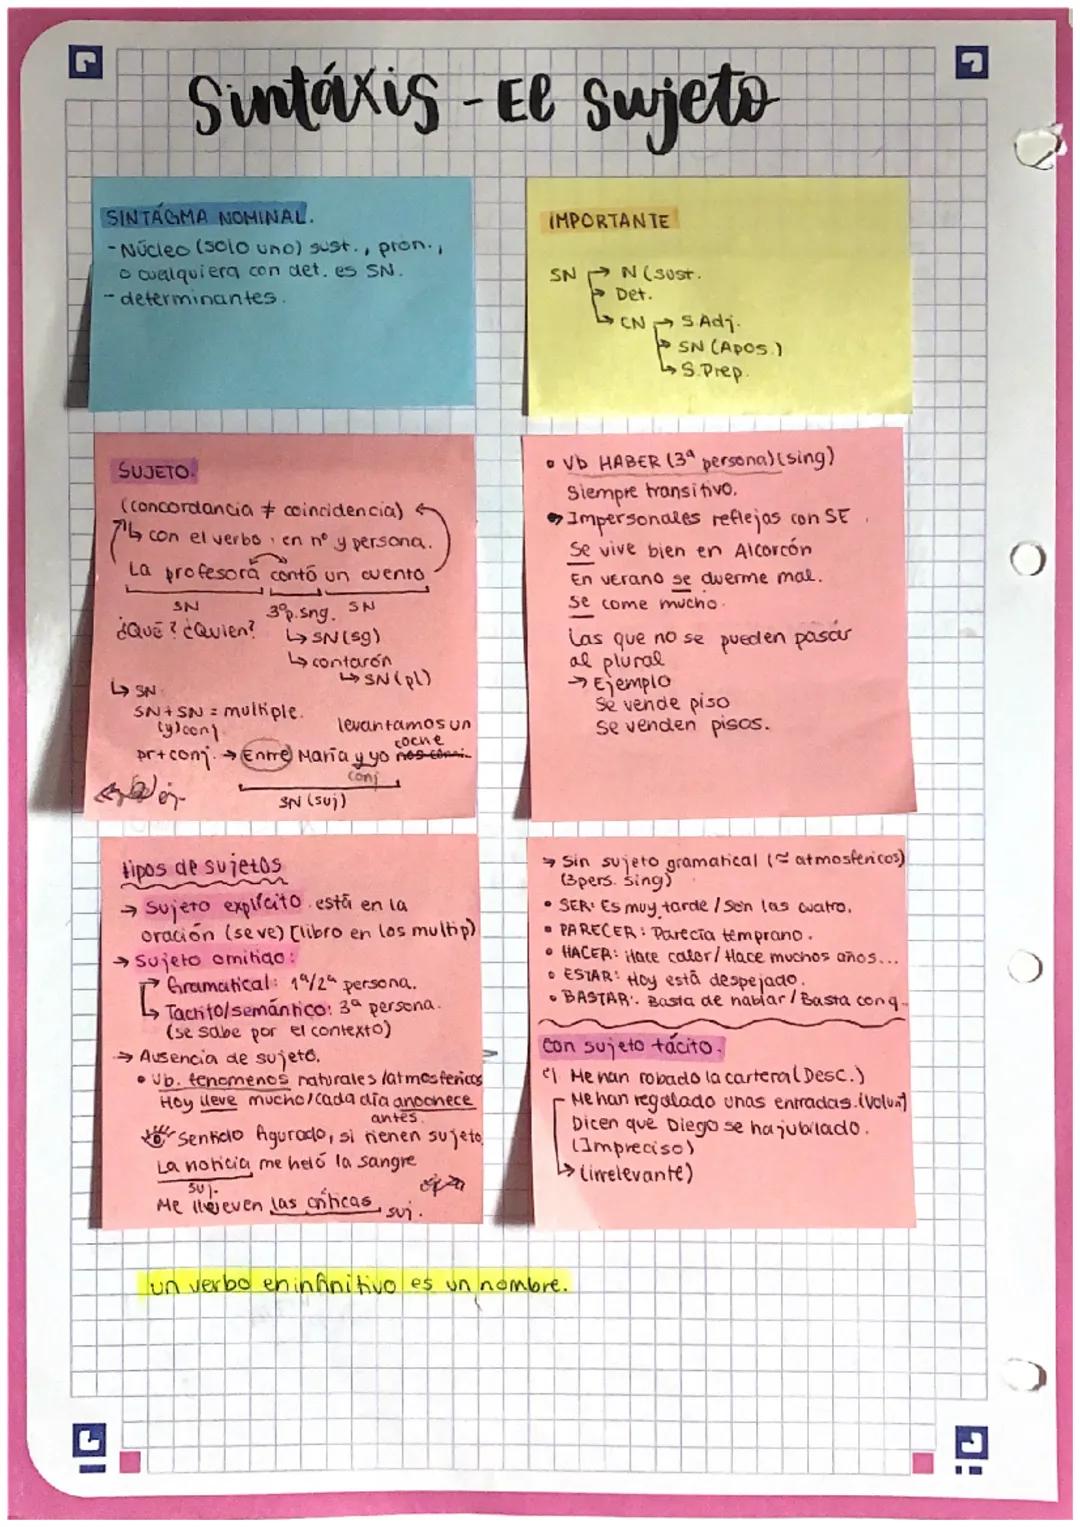 Sintáxis - El sujeto
SINTÁGMA NOMINAL.
- Núcleo (solo uno) sust., pron.,
o cualquiera con det. es SN.
- determinantes.
IMPORTANTE
SN → N (sust.
→ Det.
→ CN → S.Adj.
→ SN (Apos.)
→ S.Prep.
SUJETO.
(concordancia ≠ coincidencia)
↳ con el verbo, en nº y persona.
La profesora contó un cuento
SN 3ºp.sng. SN
¿Qué? ¿Quien? ↳ SN (sg)
↳ contarón
↳ SN (pl)
↳ SN
SN + SN = multiple.
(y) conj
levantamos un
coche
pr + conj. → Entre María y yo
conj
SN (suj)
• Vb HABER (3ª persona) (sing)
Siempre transitivo.
→ Impersonales reflejas con SE
Se vive bien en Alcorcón
En verano se duerme mal.
Se come mucho.
Las que no se pueden pasar
al plural
→ Ejemplo
Se vende piso
Se venden pisos.
tipos de sujetos
→ Sujeto explícito está en la
oración (se ve) [libro en los multip)
→ Sujeto omitido:
→ Gramatical: 1ª/2ª persona.
↳ Tácito/semántico: 3ª persona.
(se sabe por el contexto)
→ Ausencia de sujeto.
• Vb. fenomenos naturales/atmosfericos
Hoy lleve mucho/cada día anochece
antes.
Sentido figurado, si tienen sujeto
La noticia me heló la sangre
suj.
Me llueven las críticas suj.
→ Sin sujeto gramatical (≈ atmosfericos)
(3pers. sing)
• SER: Es muy tarde / Son las cuatro.
• PARECER: Parecía temprano.
• HACER: Hace calor / Hace muchos años...
• ESTAR: Hoy está despejado.
• BASTAR: Basta de hablar / Basta con q..
con sujeto tácito.
Me han robado la cartera (Desc.)
Me han regalado unas entradas. (Volunt)
Dicen que Diego se ha jubilado.
(Impreciso)
↳ (irrelevante)
un verbo en infinitivo es un nombre.